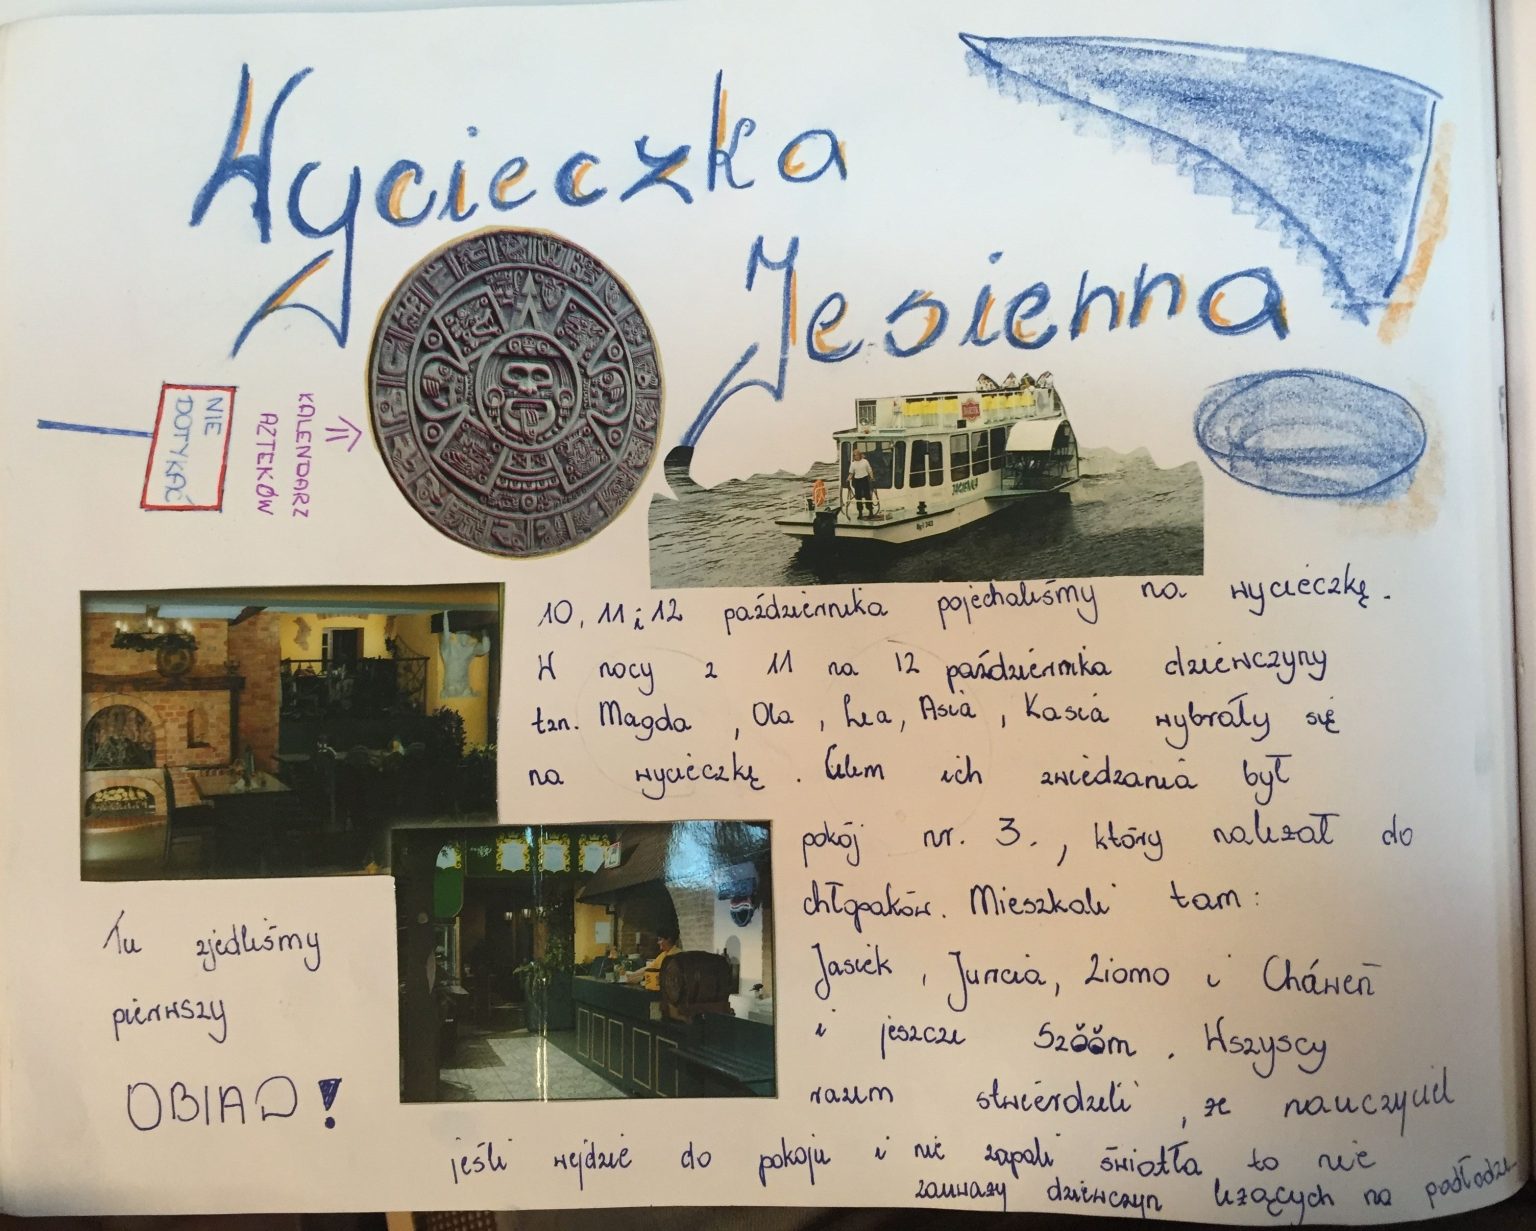 Wycieczka
Jesienna
NIE
DOTYKAĆ
KALENDARZ
AZTEKÓW
10, 11 i 12 października pojechaliśmy na wycieczkę.
W nocy z 11 na 12 października dziewczyny
tzn. Magda, Ola, Lea, Asia, Kasia wybrały się
na wycieczkę. Celem ich zwiedzania był
pokój nr. 3., który należał do
chłopaków. Mieszkali tam:
Jasiek, Juncia, Ziomo i Cháweń
i jeszcze Szŏŏm. Wszyscy
razem stwierdzili, że nauczyciel
jeśli wejdzie do pokoju i nie zapali światła to nie
zauważy dziewczyn leżących na podłodze
Tu zjedliśmy
pierwszy
OBIAD!